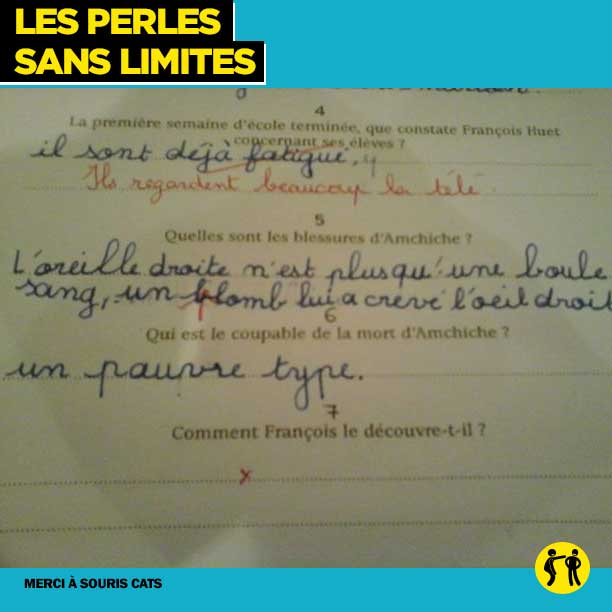 LES PERLES
SANS LIMITES
4
La première semaine d'école terminée, que constate François Huet
concernant ses élèves ?
il sont déjà fatigué,
Ils regardent beaucoup la télé.
5
Quelles sont les blessures d'Amchiche ?
L'oreille droite n'est plus qu'une boule
sang, un plomb lui a crevé l'oeil droit
6
Qui est le coupable de la mort d'Amchiche ?
un pauvre type.
7
Comment François le découvre-t-il ?
x
MERCI À SOURIS CATS